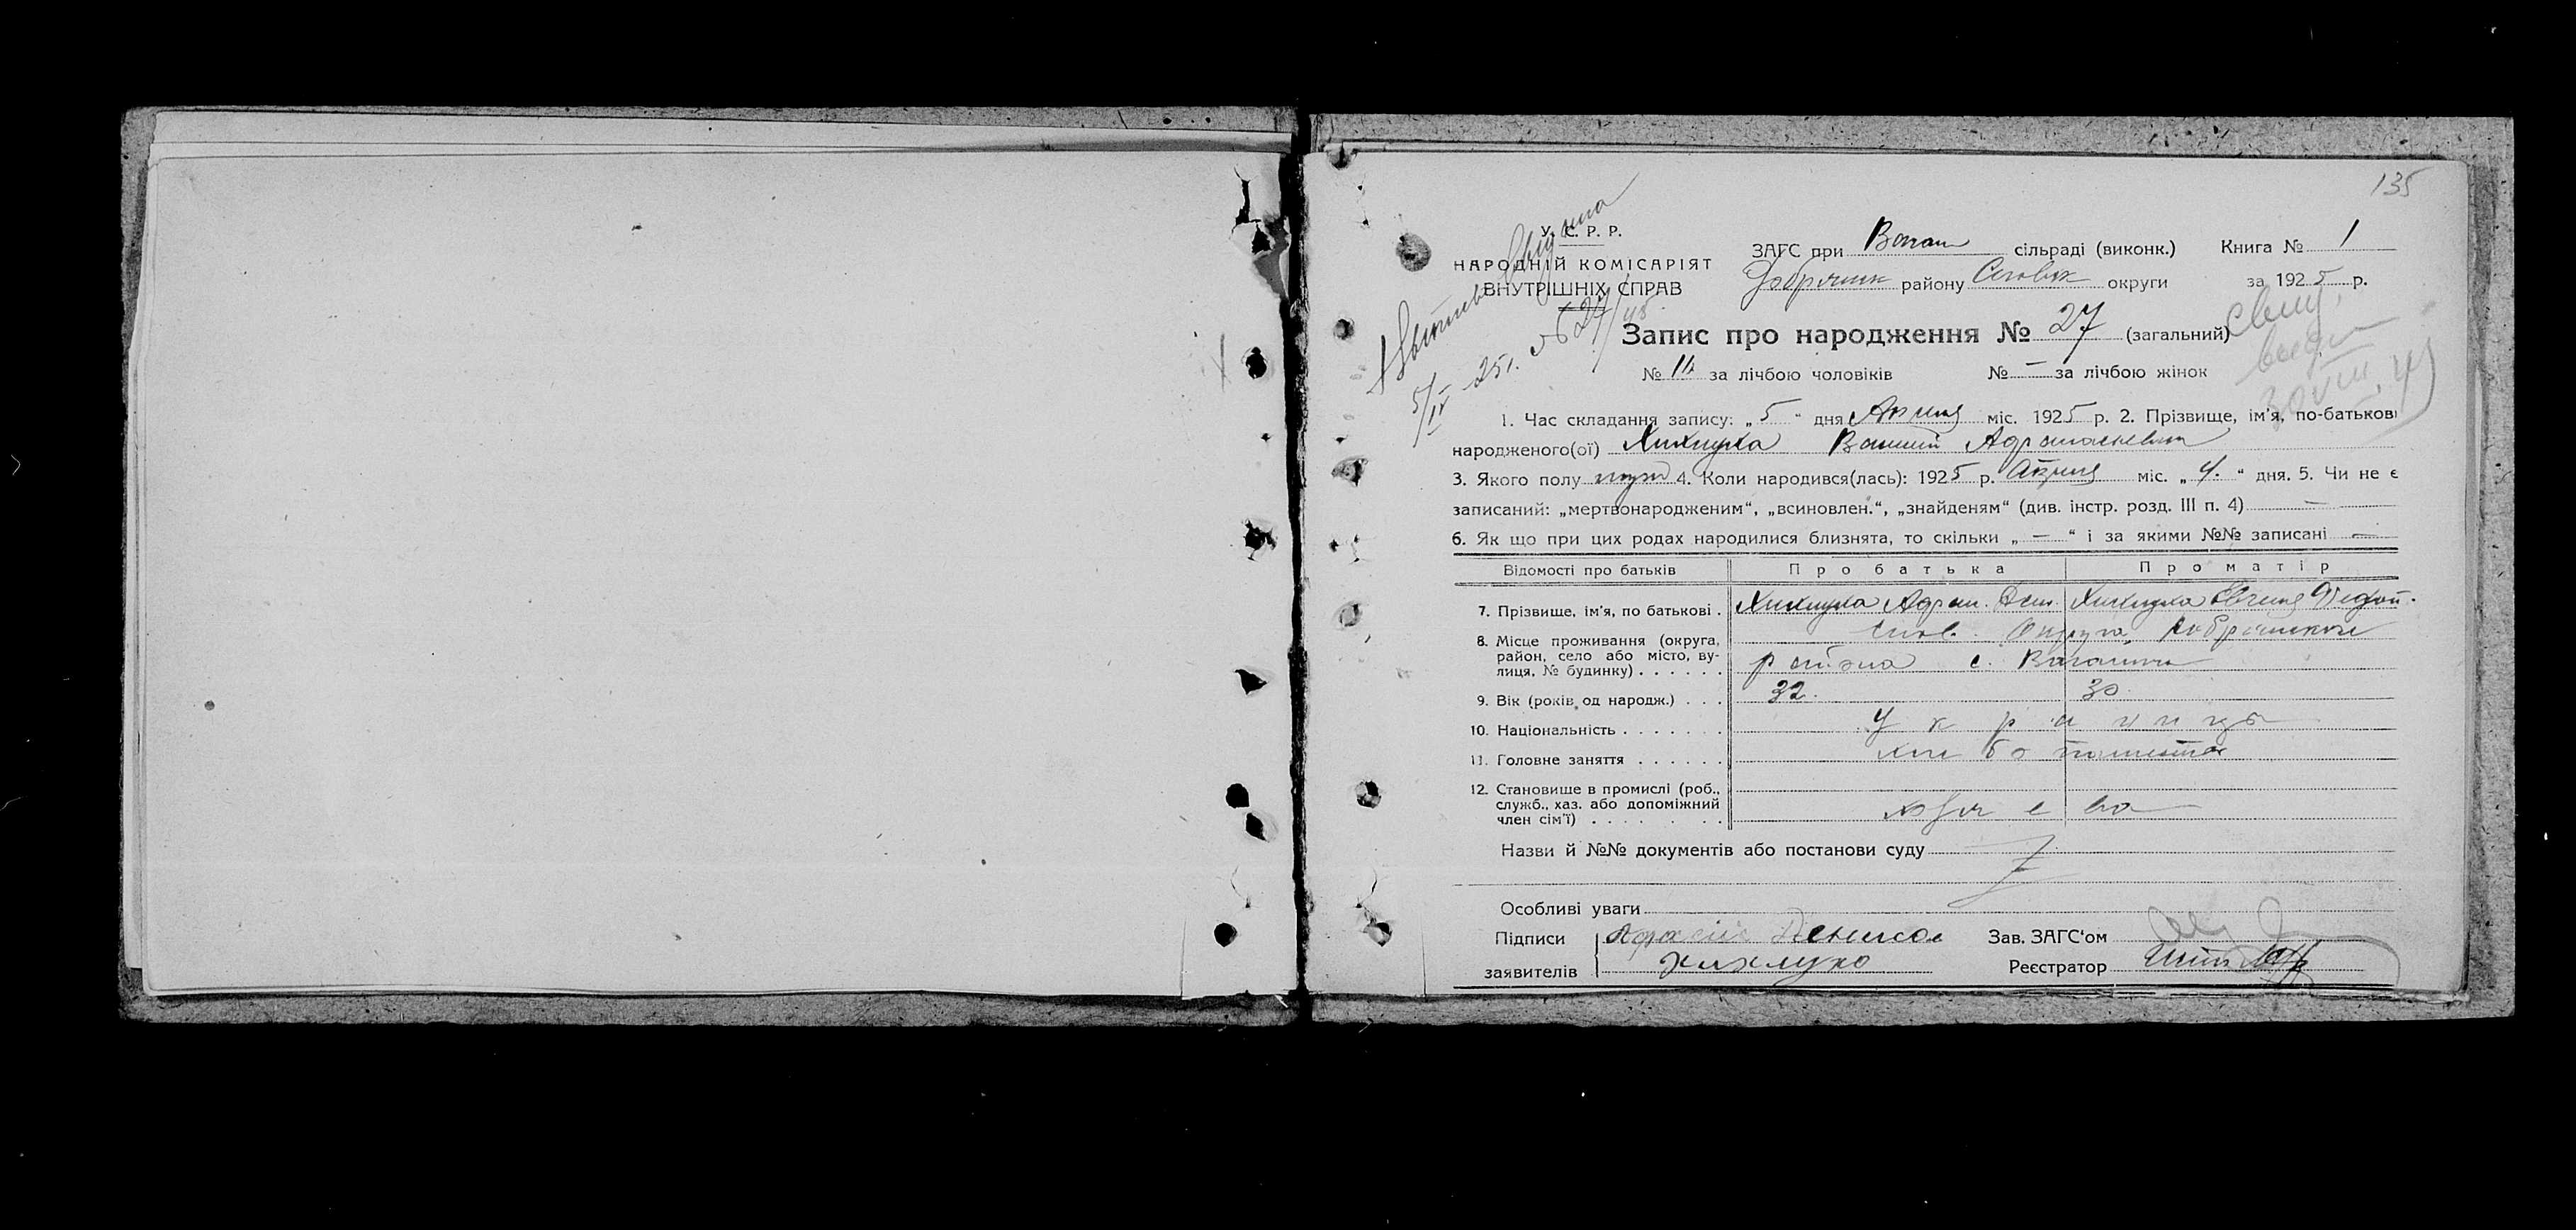 135
У. С. Р. Р.
НАРОДНІЙ КОМІСАРІЯТ
ВНУТРІШНІХ СПРАВ
ЗАГС при Ваган сільраді (виконк.) Книга № 1
Добрянск району Сновск округи за 1925 р.
5/IV 25 г. № 27
Запис про народження № 27 (загальний)
№ за лічбою чоловіків № — за лічбою жінок
1. Час складання запису: „ 5 “ дня Апреля міс. 1925 р. 2. Прізвище, ім'я, по-батькові
народженого(ої) Хихлуха
3. Якого полу муж 4. Коли народився(лась): 1925 р. Апреля міс. „ 4. “ дня. 5. Чи не є
записаний: „мертвонародженим“, „всиновлен.“, „знайденям“ (див. інстр. розд. III п. 4) —
6. Як що при цих родах народилися близнята, то скільки „ — “ і за якими №№ записані —
Відомості про батьків Про батька Про матір
7. Прізвище, ім'я, по батькові . Хихлуха Хихлуха
8. Місце проживання (округа, район, село або місто, вулиця, № будинку) . . . . . . Снов. Округа, Добрянскаго
района с. Ваганичи
9. Вік (років од народж.) . . . 32. 30.
10. Національність . . . . . . . Украинцы
11. Головне заняття . . . . . . хлебопашество
12. Становище в промислі (роб., служб., хаз. або допоміжний член сім'ї) . . . . . . . хозяева
Назви й №№ документів або постанови суду
Особливі уваги
Підписи Денисов Зав. ЗАГС'ом
заявителів Хихлухо Реєстратор